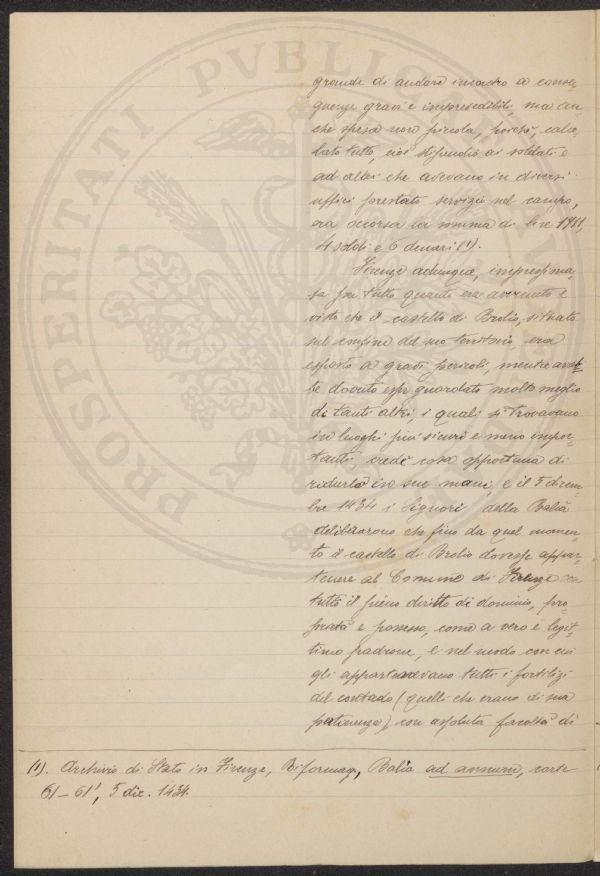 grande di andare incontro a conse-
guenze gravi e imprevedibili, ma an-
che spesa non piccola, perchè, calco-
lato tutto, cioè stipendio ai soldati e
ad altri che avevano in diversi
uffici prestato servizio nel campo,
era occorsa la somma di lire 1911,
4 soldi e 6 denari (1).
Firenze adunque, impressiona-
ta per tutto quanto era avvenuto e
visto che il castello di Brolio, situato
sul confine del suo territorio, era
esposto a gravi pericoli, mentre avreb-
be dovuto esser guardato molto meglio
di tanti altri, i quali si trovavano
in luoghi più sicuri e meno impor-
tanti credè cosa opportuna di
ridurlo in sue mani; e il 5 dicem-
bre 1434 i Signori della Balìa
deliberarono che fino da quel momen-
to il castello di Brolio dovesse appar-
tenere al Comune di Firenze con
tutto il pieno diritto di dominio, pro-
prietà e possesso, come a vero e legit-
timo padrone, e nel modo con cui
gli appartenevano tutti i fortilizi
del contado (quelli che erano di sua
pertinenza), con assoluta facoltà di
(1). Archivio di Stato in Firenze, Riformag., Balìa ad annum, carte
61-61', 5 dic. 1434.
PROSPERITATI PVBLICAE